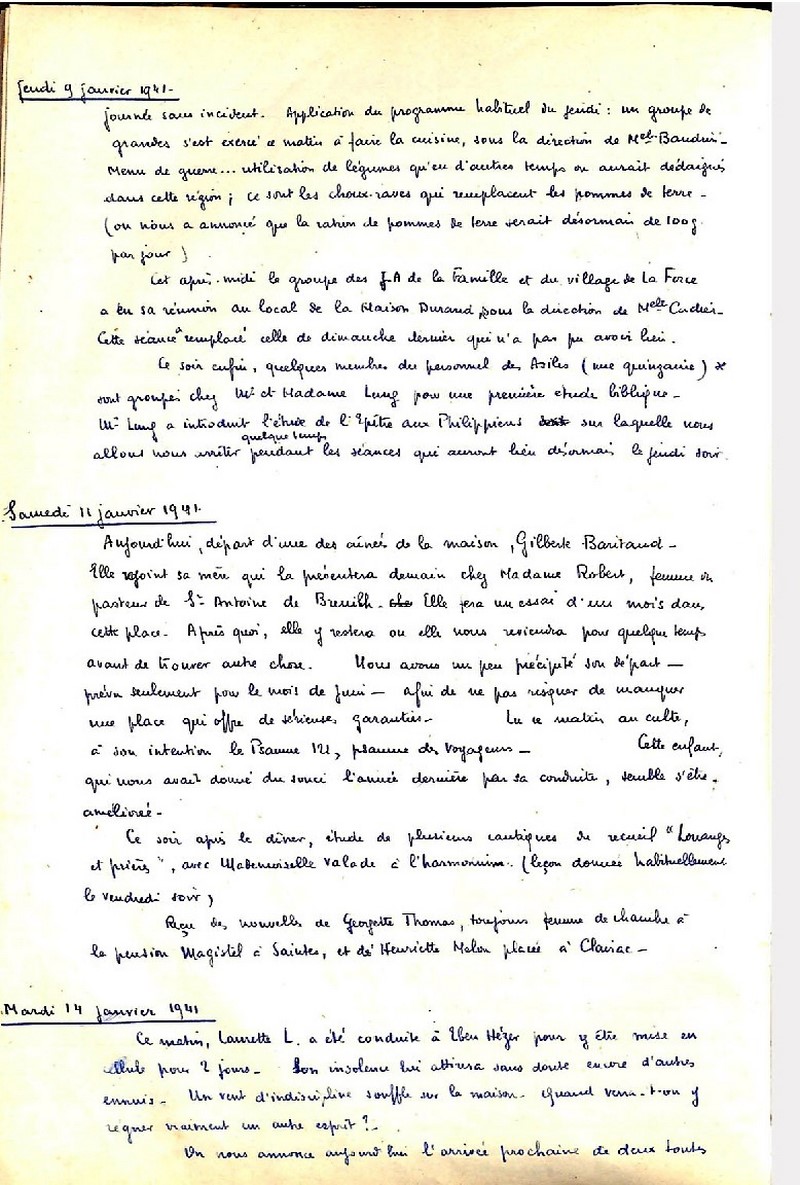 Jeudi 9 janvier 1941-
journée sans incident. Application du programme habituel du jeudi : un groupe de
grandes s'est exercé ce matin à faire la cuisine, sous la direction de Melle Baudin-
Menu de guerre... utilisation de légumes qu'en d'autres temps on aurait dédaignés
dans cette région ; ce sont les choux-raves qui remplacent les pommes de terre -
(on nous a annoncé que la ration de pommes de terre serait désormais de 100g
par jour)
Cet après-midi le groupe des JA de la Famille et du village de La Force
a eu sa réunion au local de la Maison Durand, sous la direction de Melle
Cette séance a remplacé celle de dimanche dernier qui n'a pas pu avoir lieu.
Ce soir enfin, quelques membres du personnel des Asiles (une quinzaine) se
sont groupés chez Mr et Madame Lung pour une première étude biblique -
Mr Lung a introduit l'étude de l'Epître aux Philippiens sur laquelle nous
quelque temps
allons nous arrêter pendant les séances qui auront lieu désormais le jeudi soir
Samedi 11 janvier 1941.
Aujourd'hui, départ d'une des aînées de la maison, Gilberte Baritaud -
Elle rejoint sa mère qui la présentera demain chez Madame Robert, femme du
pasteur de St Antoine de Breuilh - Elle fera un essai d'un mois dans
cette place. Après quoi, elle y restera ou elle nous reviendra pour quelque temps
avant de trouver autre chose. Nous avons un peu précipité son départ —
prévu seulement pour le mois de Juin — afin de ne pas risquer de manquer
une place qui offre de sérieuses garanties - Lu ce matin au culte,
à son intention le Psaume 121, psaume des voyageurs — Cette enfant,
qui nous avait donné du souci l'année dernière par sa conduite, semble s'être
améliorée -
Ce soir après le dîner, étude de plusieurs cantiques du recueil "Louanges
et prières", avec Mademoiselle Valade à l'harmonium. (leçon donnée habituellement
le vendredi soir)
Reçu des nouvelles de Georgette Thomas, toujours femme de chambre à
la pension Magistel à Saintes, et de Henriette Melon placée à Clairac —
Mardi 14 janvier 1941
Ce matin, Laurette L. a été conduite à Eben Hézer pour y être mise en
cellule pour 2 jours - Son insolence lui attirera sans doute encore d'autres
ennuis - Un vent d'indiscipline souffle sur la maison - Quand verra-t-on y
régner vraiment un autre esprit ? -
On nous annonce aujourd'hui l'arrivée prochaine de deux toutes